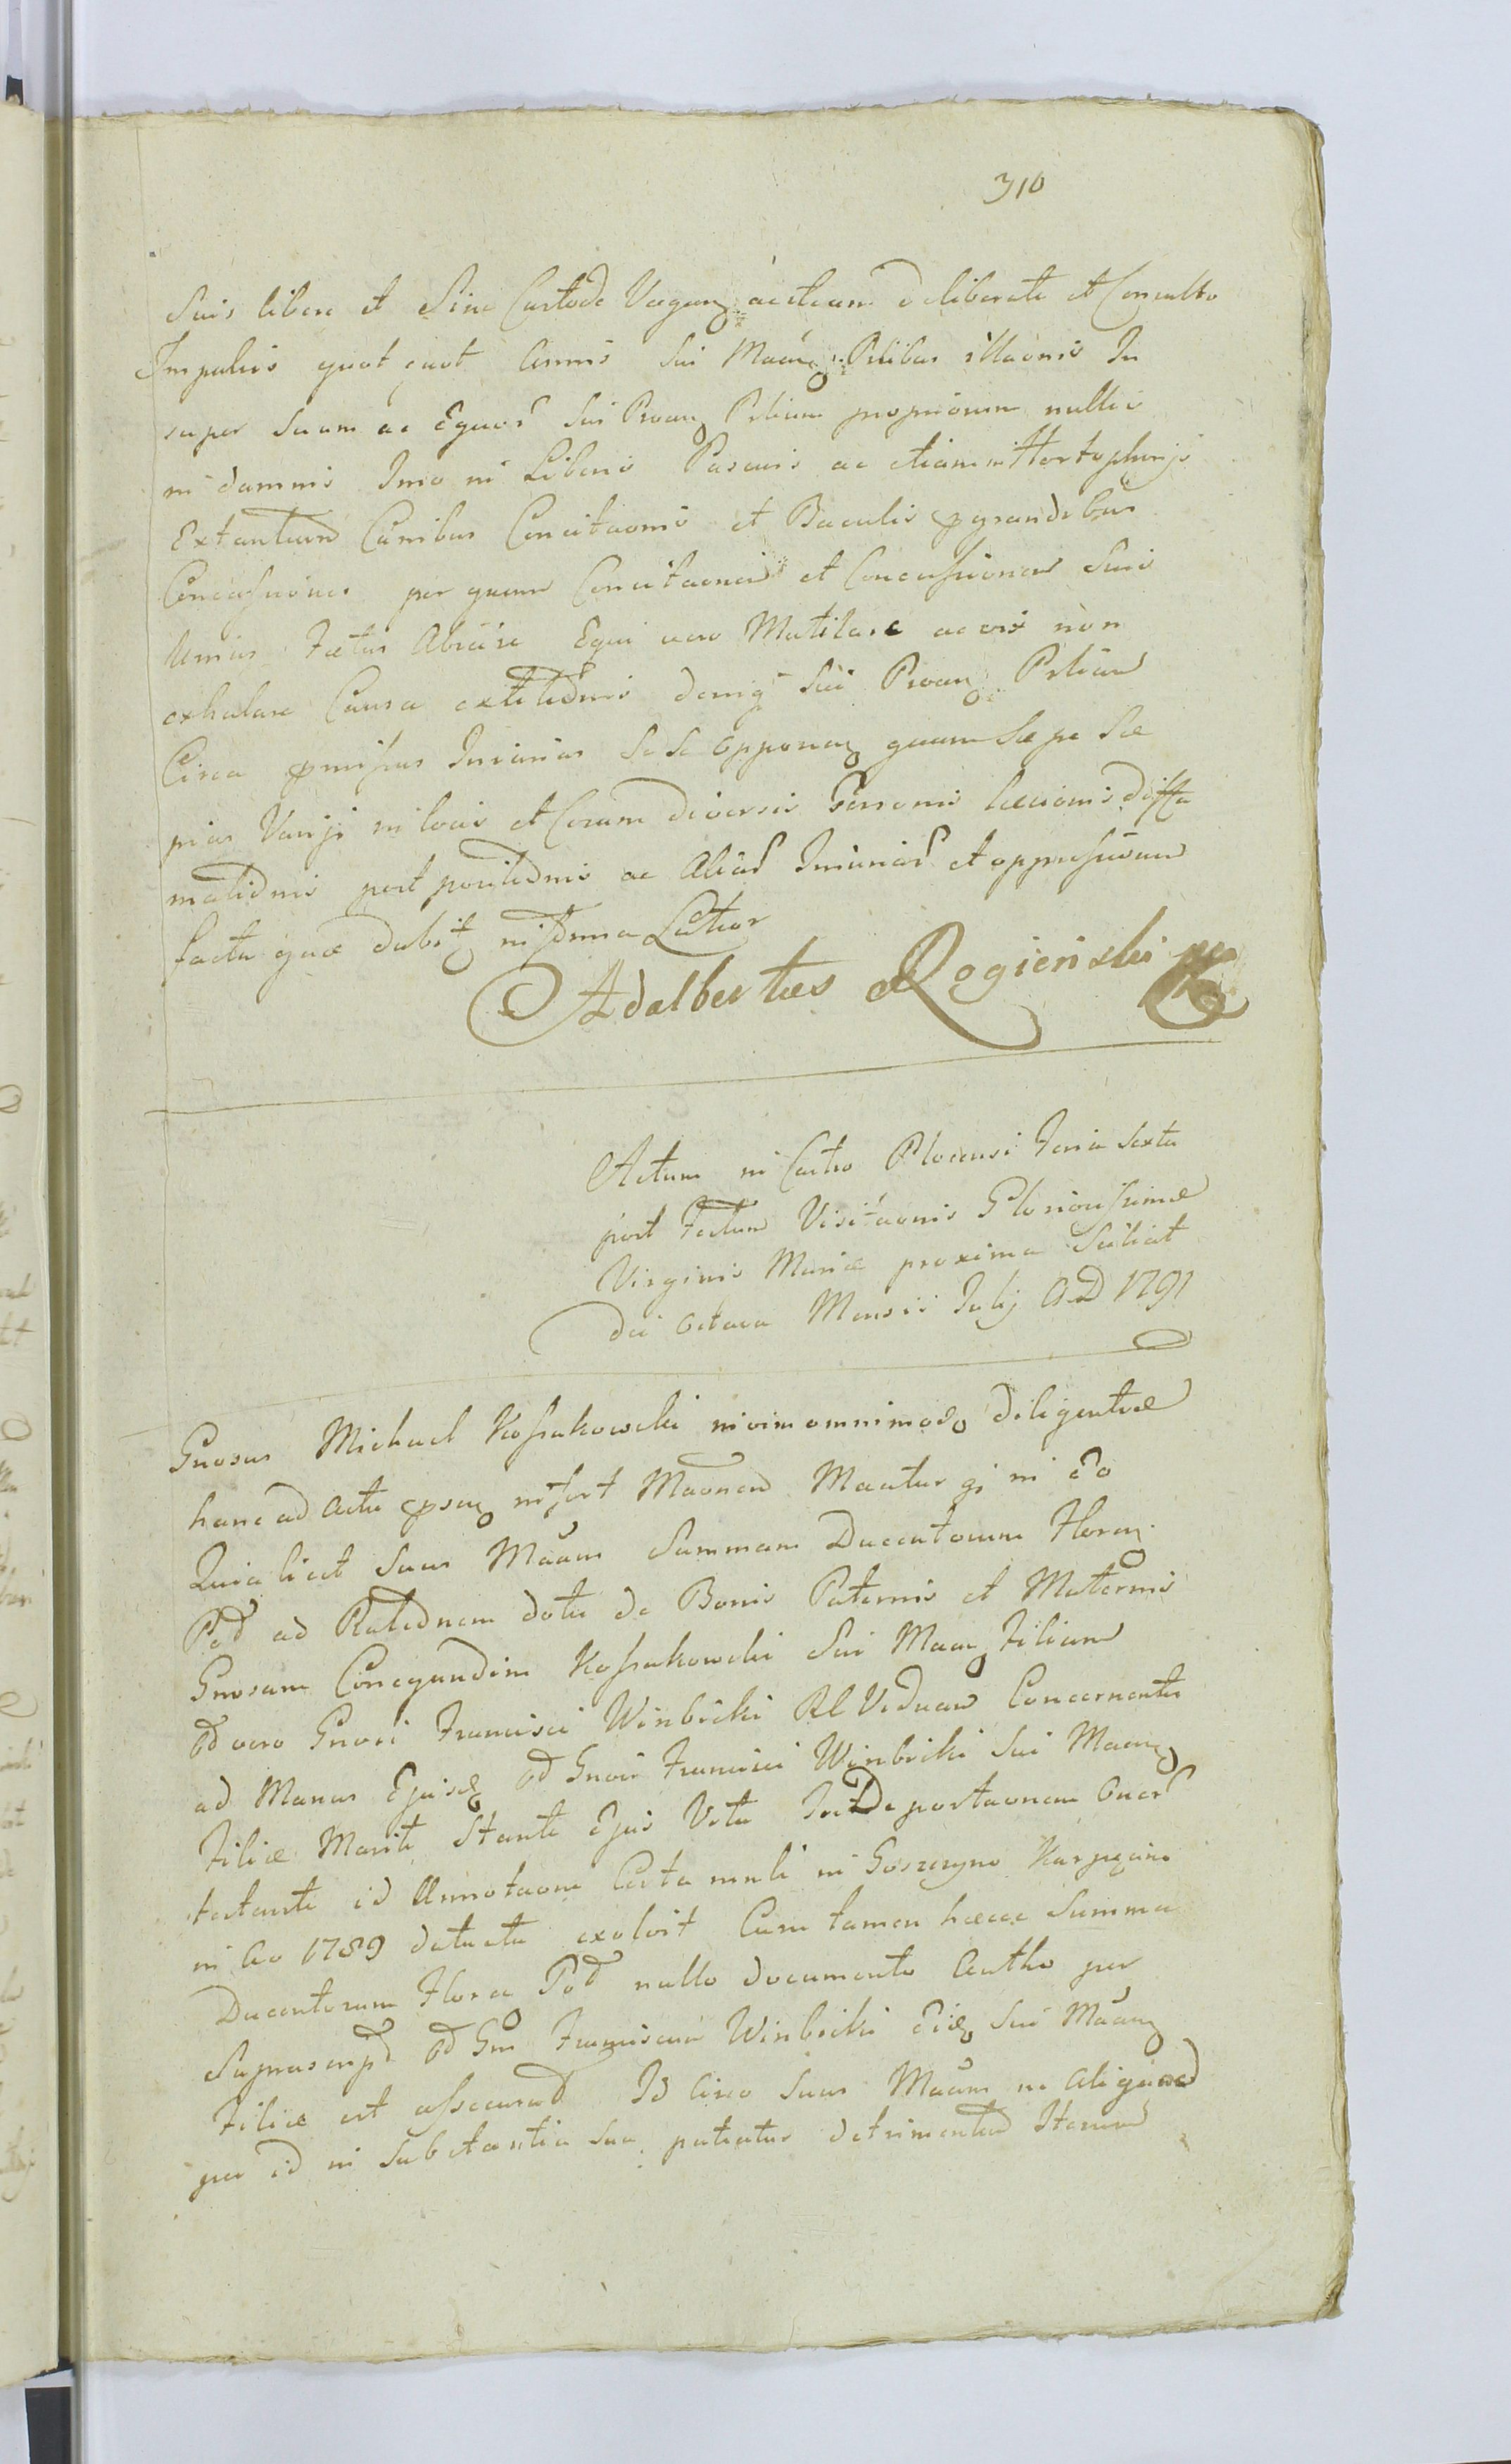 310
Suis libere et Sine Custode Vagan. acsteam deliberate et Consulto
Impulsis quot quot Annis Sui Maan. Pttibus illaonis In
super Suam ac Equor Sui Proan. Pttium propriorum nullis
in damnis Imo in Liberis Pascuis ac etiam in Hortophinijs
Extantium Canibus Concitaonis et Baculis pgrandibus
Concussiones per quam Concitaonem et Concussionem Suis
Unius Fætus Abiecisse Equi vero Mutilare ac vix non
exhalare Causa extitidnis deniq Sui Proan. Pttium
Circa pmissas Iniurias Se Se opponen. quam Sæpe Sæ
pius Varijs in locis et Coram diversis Personis læcionis diffa
matidnis post positidnis ac Aliar Iniuriar et oppressionum
facta quæ dabit. in Tmno Latior
Adalbertus Rogieński mp
Actum in Castro Plocensi Feria Sexta
post Festum Visitaonis Gloriosissimæ
Virginis Mariæ proxima Scilicet
die octava Mensis Julij A D 1791
Gnosus Michael Kossakowski in vim omnimodo diligentiæ
hanc ad Acta psen. infert Maonem Maatur qj in Eo
Quia licet Suus Maans Summam Ducentorum Floren.
Pol ad Ratednem dotis de Bonis Paternis et Maternis
Gnosam Conegundim Kossakowski Sui Maan. Filiam
Od vero Gnosi Francisci Winbicki Rl Viduam Concernentis
ad Manus Ejusd. Od Gnosi Francisci Winbicki Sui Maan.
Filiæ Mariti Stante Ejus Vita Iuxta portaonem Oner
testante id Annotaone Certa in Goszczyno Karpięcin
in Ao 1789 datata exolvit Cum tamen hæcce Summa
Ducentorum Floren Pol nullo documento Autho per
Suprascrip. Od Gn Franciscum Winbicki Eid. Sui Maan.
Filiæ est assecurat Id Circo Suus Maans ne aliquod
per id in Substantia Sua patiatur detrimentum Iterum